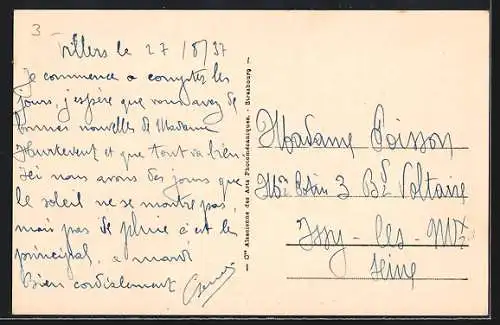 3
Villers le 27/8/37
Je commence a compter les
jours, j'espère que vous avez de
bonnes nouvelles de Madame
Hurtevent et que tout va bien.
ici nous avons des jours que
le soleil ne se montre pas
mais pas de pluie c'est le
principal, a mardi
Bien cordialement
Madame Poisson
3 Bd Voltaire
Issy-les-Mx
Seine
— Cie Alsacienne des Arts Photomécaniques. - Strasbourg —